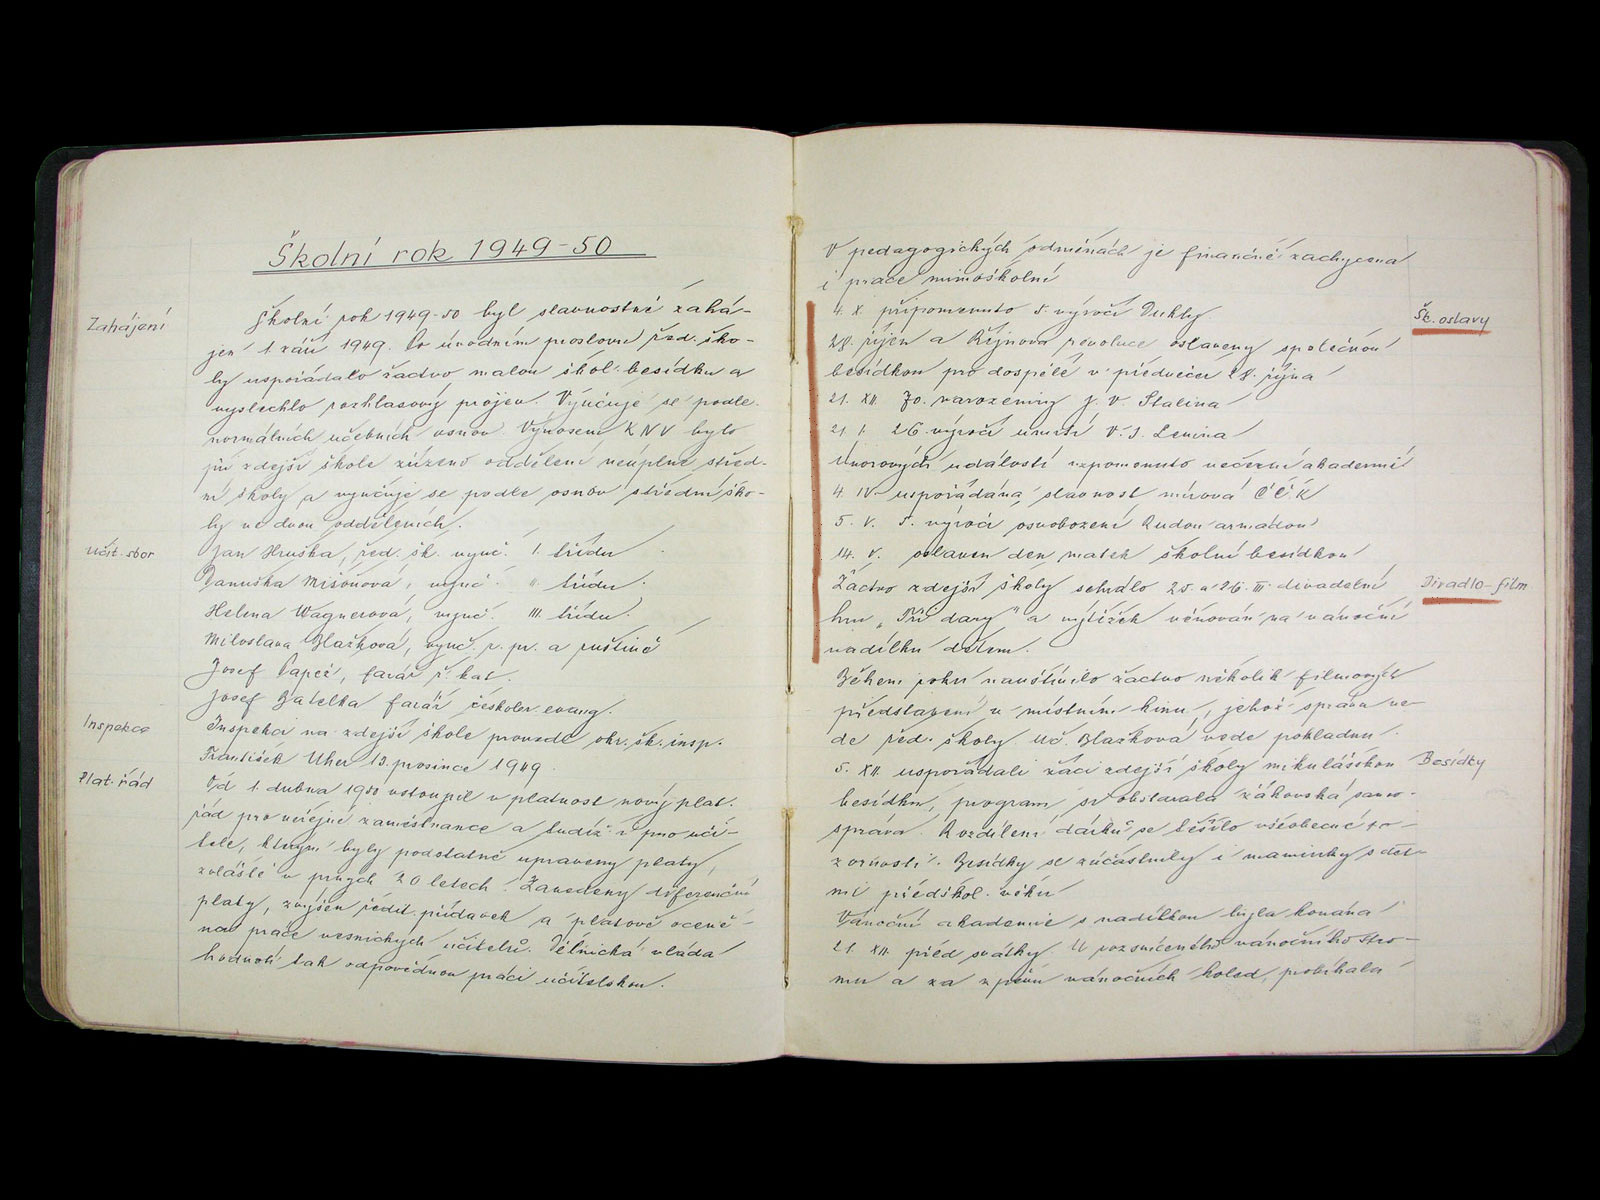 Školní rok 1949-50
Zahájení
Školní rok 1949-50 byl slavnostně zahá-
jen 1. září 1949. Po úvodním proslovu řed. ško-
ly uspořádalo žactvo malou škol. besídku a
vyslechlo rozhlasový projev. Vyučuje se podle
normálních učebních osnov. Výnosem KNV bylo
při zdejší škole zřízeno oddělení neúplné střed-
ní školy a vyučuje se podle osnov střední ško-
ly ve dvou odděleních.
Učit. sbor
Jan Hruška, řed. šk. vyuč. I. třídu
Danuška Mišoňová, vyuč. II. třídu.
Helena Wagnerová, vyuč. III. třídu.
Miloslava Blažková, vyuč. r. pr. a ruštině
Josef Papež, farář ř. kat.
Josef Batelka farář českobr. evang.
Inspekce
Inspekci na zdejší škole provedl okr. šk. insp.
František Uher 13. prosince 1949.
Plat. řád
Od 1. dubna 1950 vstoupil v platnost nový plat.
řád pro veřejné zaměstnance a tudíž i pro uči-
tele, kterým byly podstatně upraveny platy,
zvláště v prvých 20 letech. Zavedeny diferenční
platy, zvýšen ředit. přídavek a platově oceně-
na práce vesnických učitelů. Dělnická vláda
hodnotí tak odpovědnou práci učitelskou.
V pedagogických odměnách je finančně zachycena
i práce mimoškolní
Šk. oslavy
4. X. připomenuto 5. výročí Dukly
28. říjen a Říjnová revoluce oslaveny společnou
besídkou pro dospělé v předvečer 28. října
21. XII. 70. narozeniny J. V. Stalina
21. I. 26. výročí úmrtí V. I. Lenina
Únorových událostí vzpomenuto večerní akademií
4. IV. uspořádána slavnost mírová ČČK
5. V. 5. výročí osvobození Rudou armádou
14. V. oslaven den matek školní besídkou
Divadlo-film
Žactvo zdejší školy sehrálo 25. a 26. III. divadelní
hru „Tři dary" a výtěžek věnován na vánoční
nadílku dětem.
Během roku navštívilo žactvo několik filmových
představení v místním kinu, jehož správu ve-
de řed. školy. Uč. Blažková vede pokladnu.
Besídky
5. XII. uspořádali žáci zdejší školy mikulášskou
besídku, program si obstarala žákovská samo-
správa. Rozdílení dárků se těšilo všeobecné po-
zornosti. Besídky se zúčastnily i maminky s dět-
mi předškol. věku
Vánoční akademie s nadílkou byla konána
21. XII. před svátky. U rozsvíceného vánočního stro-
mu a za zpěvu vánočních koled, probíhala